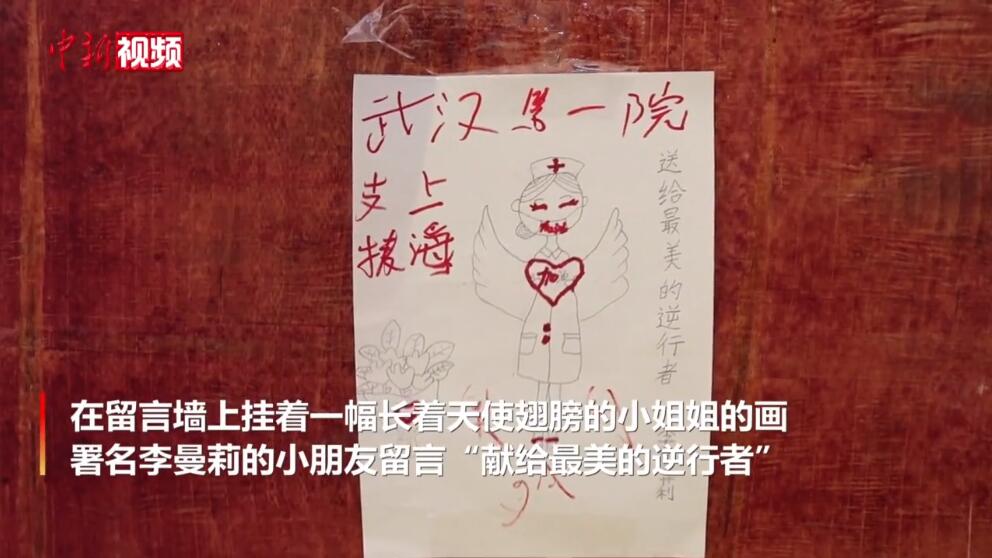 中新视频
武汉第一院
支上
援海
送给最美的逆行者
加油
在留言墙上挂着一幅长着天使翅膀的小姐姐的画
署名李曼莉的小朋友留言“献给最美的逆行者”